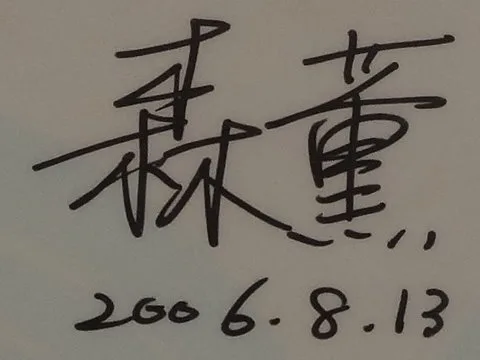 森薫
2006.8.13